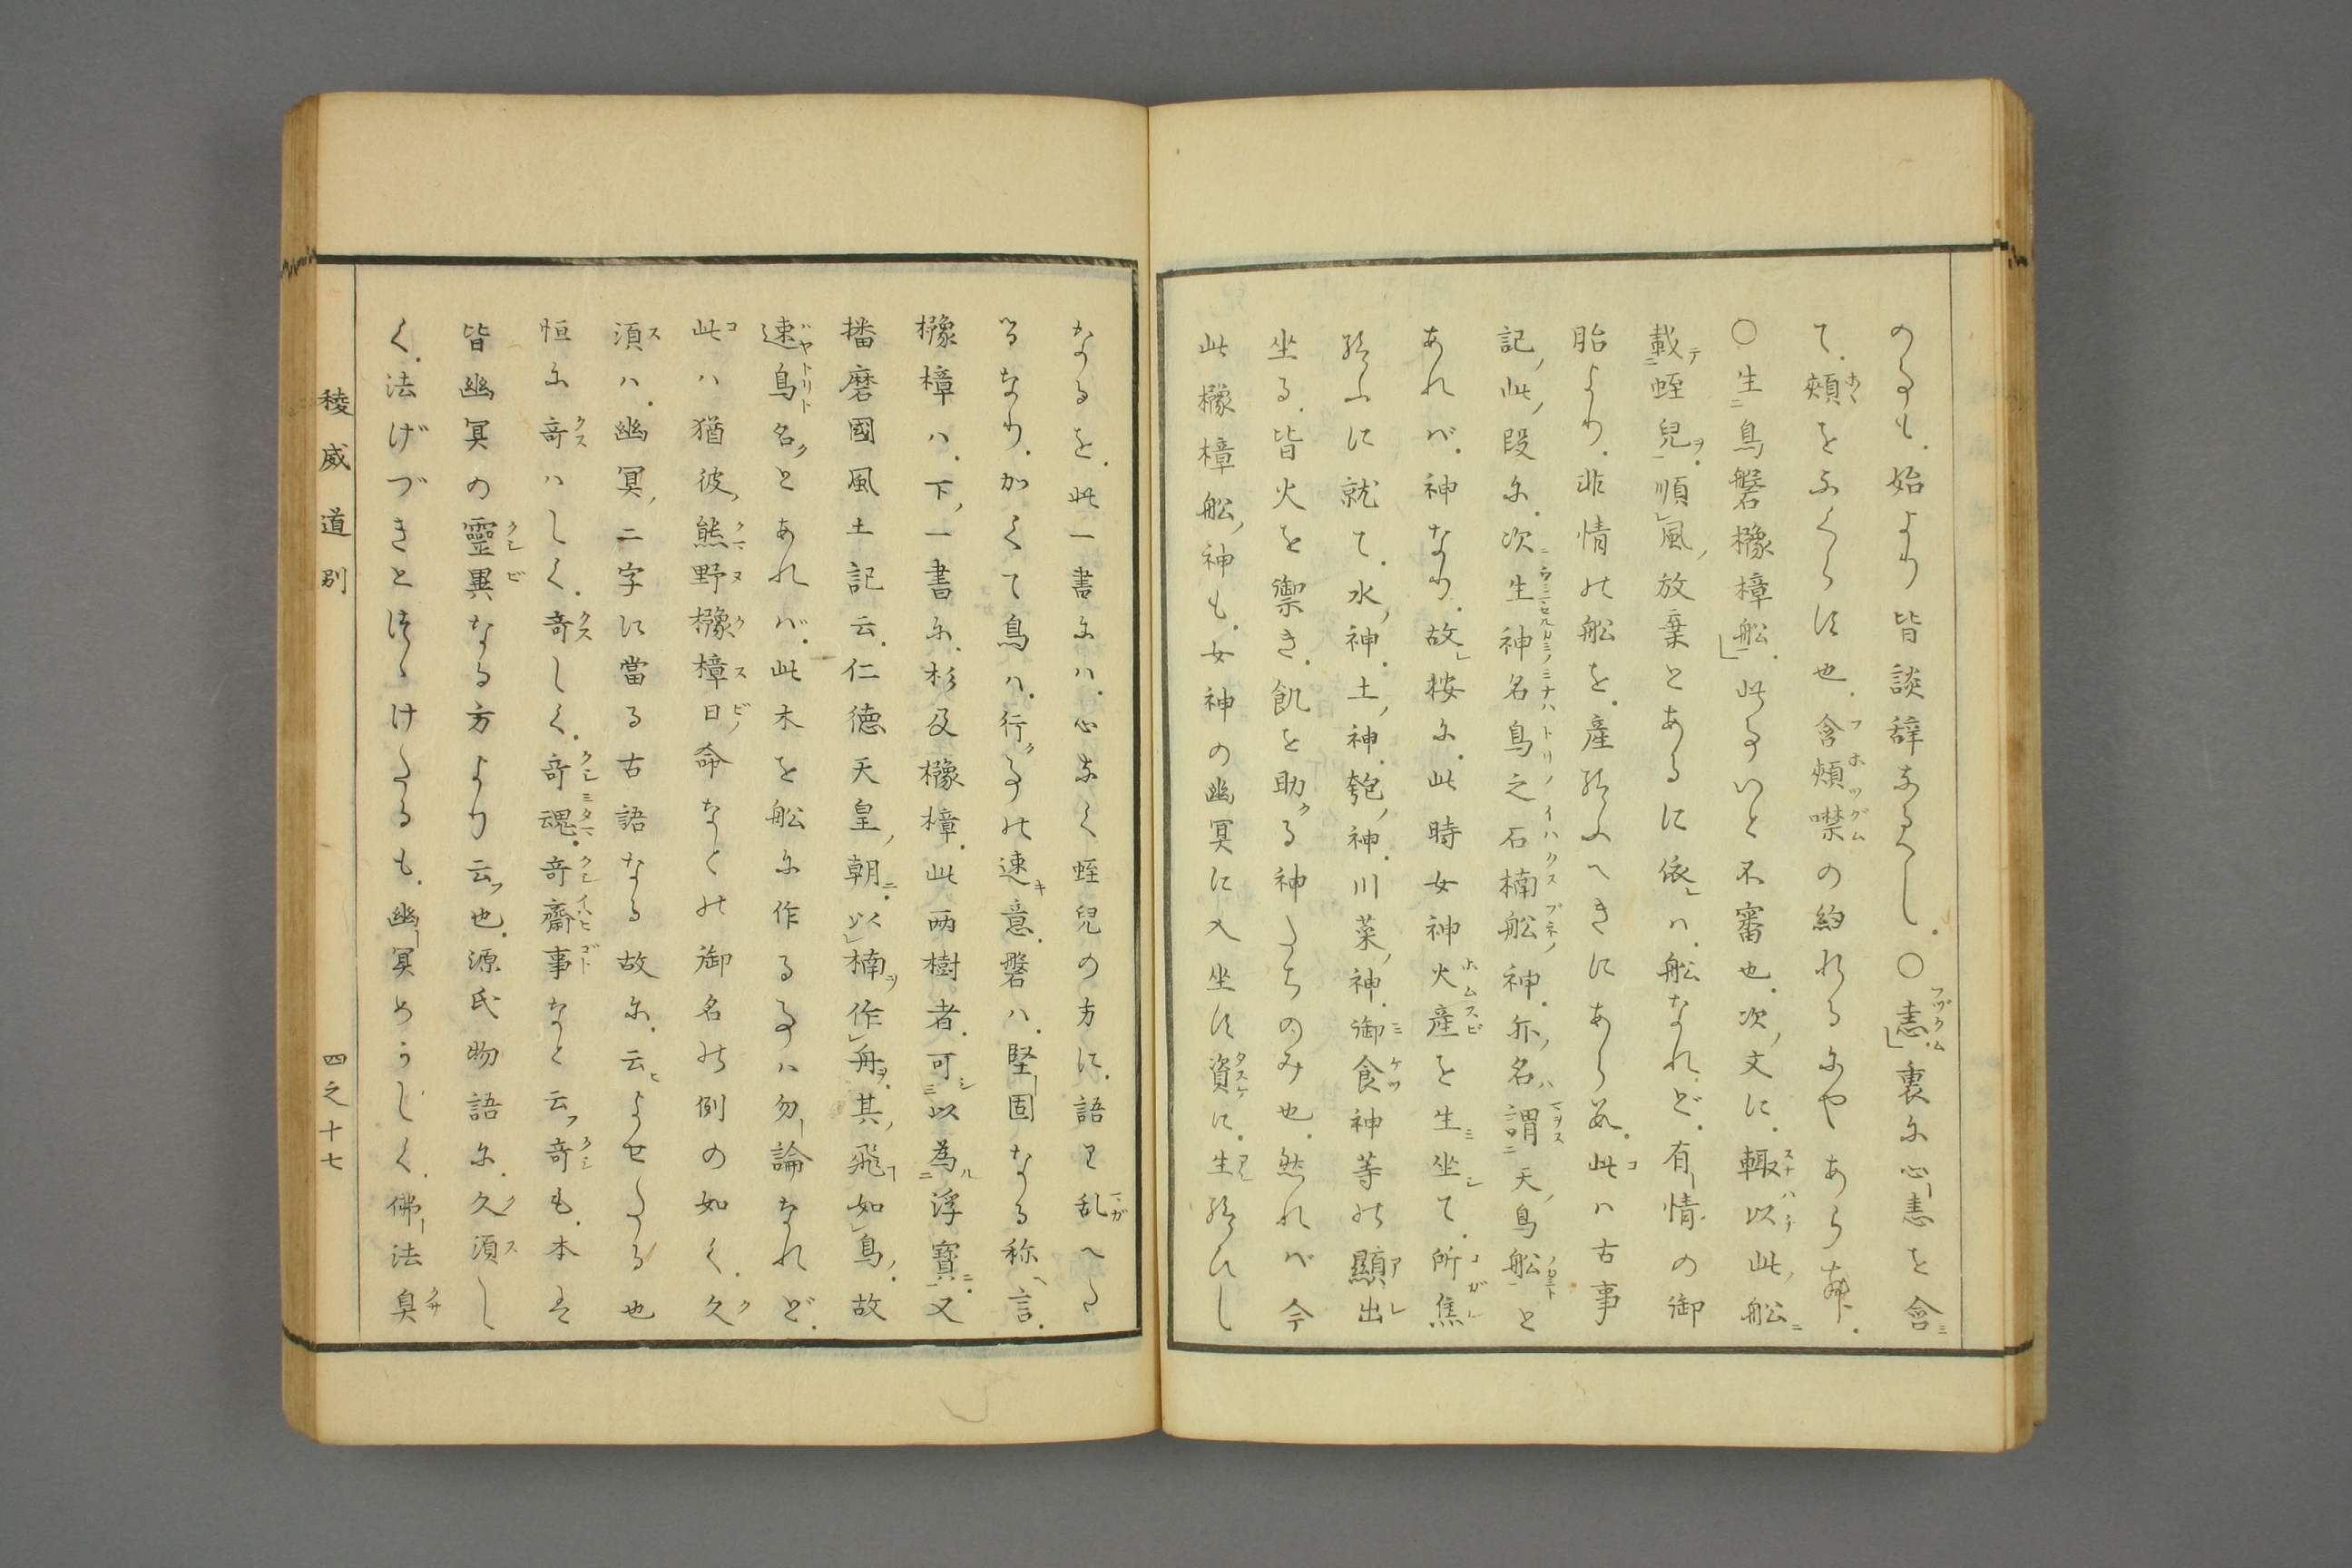 のる事も、始より皆談辞なるべし。〇恚裏尓心恚を含
て、頬をふくらす也。含頬噤の約れるにやあらむ。
〇生鳥磐櫲樟船。此事いと不審也。次ノ文に、輙以此ノ船
載蛭兒ヲ順風ノ放棄とあるに依レハ、船なれど、有情の御
胎より、非情の船を、産給ふへきにあらぬ。此ハ古事
記ノ此ノ段尓、次生神名鳥之石楠船神、亦ノ名ハ謂天ノ鳥船と
あれバ、神なり。故按尓、此時女神火産を生坐て、所焦
給ふに就て、水ノ神、土ノ神、匏ノ神、川菜ノ神、御食神等の顯出
坐る、皆火を禦き、飢を助る神たちのみ也。然れバ今
此櫲樟船ノ神も、女神の幽冥に入坐す資に、生給ひし
なるを、此一書尓ハ、心なく蛭兒の方に、語り乱へた
るなり。かくて鳥ハ、行事の速キ意、磐ハ、堅固なる称言、
櫲樟ハ、下ノ一書尓、杉及櫲樟、此両樹者、可以為浮寳、又
播磨國風土記云、仁徳天皇ノ朝、以楠作舟、其ノ飛如鳥、故
速鳥名クとあれバ、此木を船尓作る事ハ勿論なれど、
此ハ猶彼ノ熊野櫲樟日命なとの御名の例の如く、久
須ハ、幽冥ノ二字に當る古語なる故尓、云ヒよせたる也
恒尓奇ハしく、奇しく、奇魂、奇齋事なと云フ奇も、本は
皆幽冥の靈異なる方より云フ也。源氏物語尓、久須し
く、法げづきとつゝけたるも、幽冥めうじく、佛法臭
稜威道別
四之十七